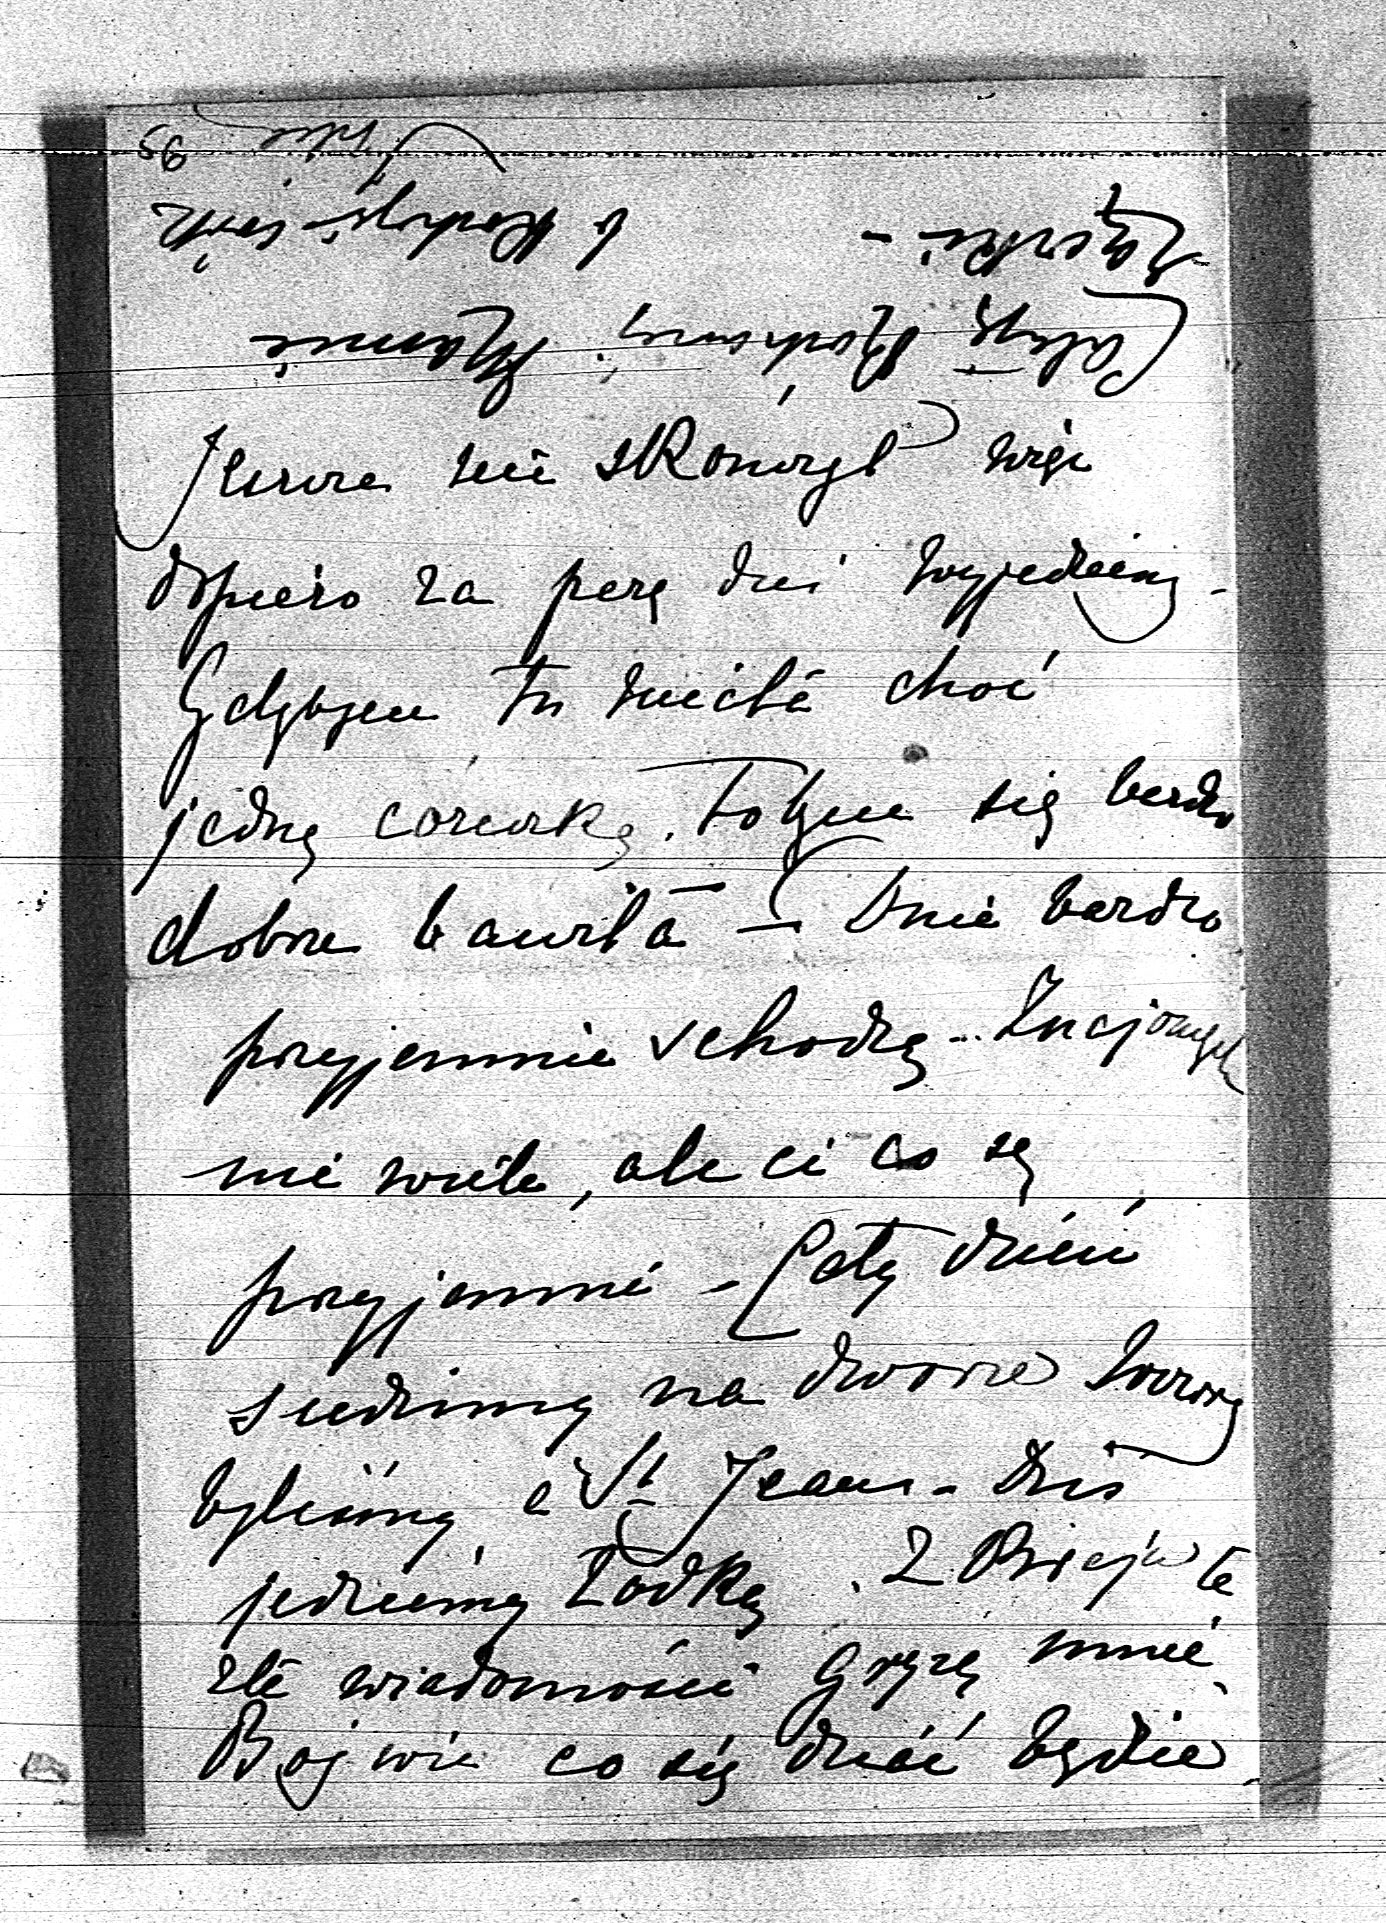 95
Całuję Kochanej Mamie
Rączki –
Jeszcze nie skończył więc
dopiero za parę dni wyjedziemy –
Gdybym tu miała choć
jedną córeczkę. Tobym się bardzo
dobrze bawiła – Dnie bardzo
przyjemnie schodzą – Znajomych
nie wiele, ale ci co są
przyjemni – Cały dzień
siedzimy na dworze Wczoraj
byliśmy à St Jean – Dziś
jedziemy łódką. Z Kraju te
złe wiadomości gryzą mnie
Bóg wie co się dziać będzie